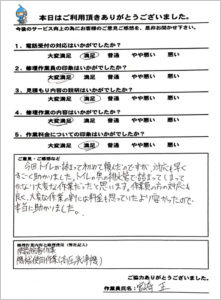 本日はご利用頂きありがとうございました。
今後のサービス向上の為にお客様のご意見ご感想を、是非お聞かせ下さい。
1．電話受付の対応はいかがでしたか？
大変満足 満足 普通 やや悪い 悪い
2．修理作業員の印象はいかがでしたか？
大変満足 満足 普通 やや悪い 悪い
3．見積もり内容の説明はいかがでしたか？
大変満足 満足 普通 やや悪い 悪い
4．修理作業の内容はいかがでしたか？
大変満足 満足 普通 やや悪い 悪い
5．作業料金についての印象はいかがでしたか？
大変満足 満足 普通 やや悪い 悪い
ご意見・ご感想など
今回トイレが詰まって初めて頼んだのですが、対応も早く
すごく助かりました。トイレの奥の排水管で詰まってしまって
かなり大変な作業だったと思います。作業員の方の対応も
良く、大変な作業の割には料金も思っていたより安かったので
本当に助かりました。
ご協力ありがとうございました。
作業員氏名